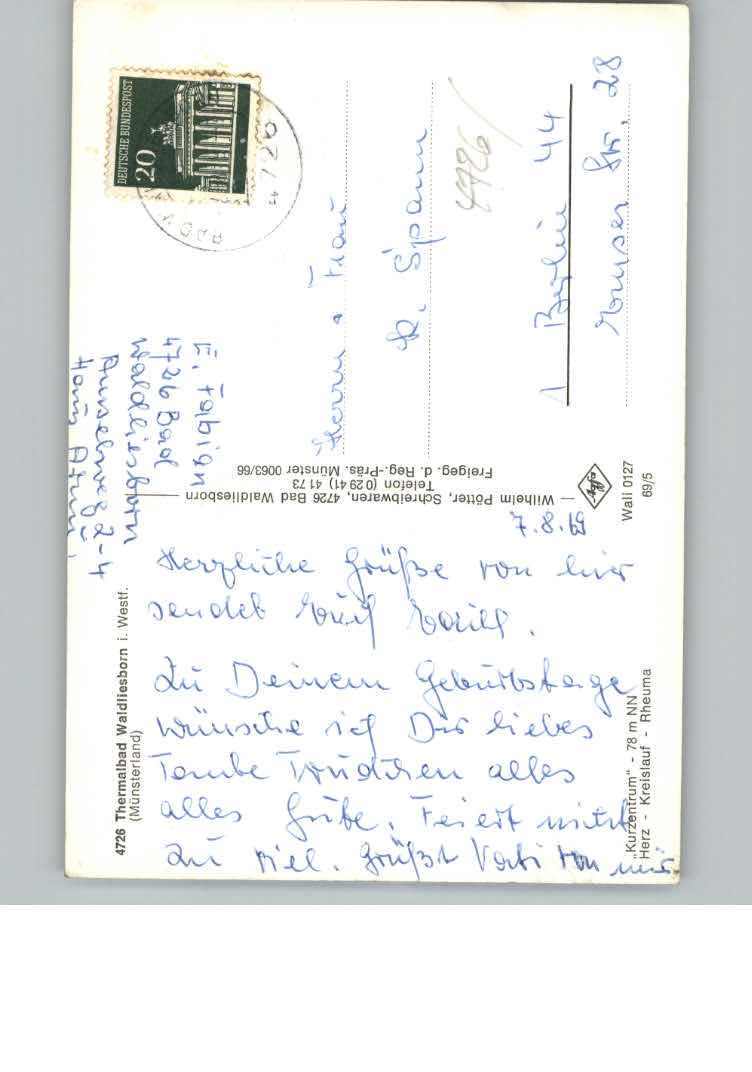 4726 Thermalbad Waldliesborn i. Westf.
(Münsterland)
7.8.69
Herzliche Grüße von hier
sendet Euch
Zu Deinem Geburtstage
wünsche ich Dir liebes
Tante Trudchen alles
alles Gute. Feiert nicht
zu viel. Grüßt Vati von mir
„Kurzentrum" - 78 m NN
Herz - Kreislauf - Rheuma
Wilhelm Pötter, Schreibwaren, 4726 Bad Waldliesborn
Telefon (0 29 41) 41 73
Freigeg. d. Reg.-Präs. Münster 0063/66
Wali 0127
69/5
E. Fabian
4726 Bad
Waldliesborn
Amselweg 2-4
Haus
DEUTSCHE BUNDESPOST
20
Herrn u Frau
K. Spann
4726/
1 Berlin 44
Emser Str. 28